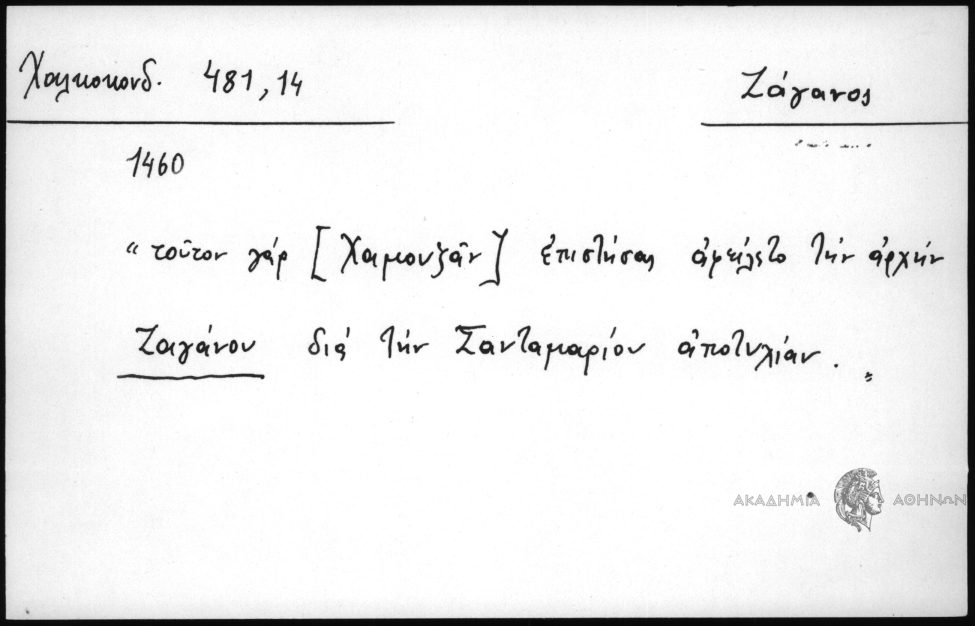 Χαλκοκονδ. 481,14
Ζάγανος
1460
“ τοῦτον γάρ [Χαμουζᾶν] ἐπιστήσας ἀφείλετο τήν ἀρχήν
Ζαγάνου διά τήν Σανταμαρίου ἀποτυλίαν. „
ΑΚΑΔΗΜΙΑ ΑΘΗΝΩΝ